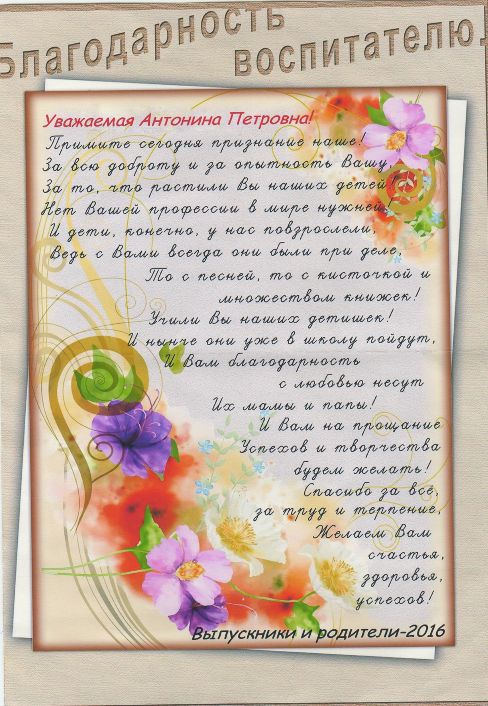 Благодарность
воспитателю!
Уважаемая Антонина Петровна!
Примите сегодня признание наше!
За всю доброту и за опытность Вашу,
За то, что растили Вы наших детей!
Нет Вашей профессии в мире нужней!
И дети, конечно, у нас повзрослели,
Ведь с Вами всегда они были при деле,
То с песней, то с кисточкой и
множеством книжек!
Учили Вы наших детишек!
И нынче они уже в школу пойдут,
И Вам благодарность
с любовью несут
Их мамы и папы!
И Вам на прощание
Успехов и творчества
будем желать!
Спасибо за всё,
за труд и терпение,
Желаем Вам
счастья,
здоровья,
успехов!
Выпускники и родители-2016